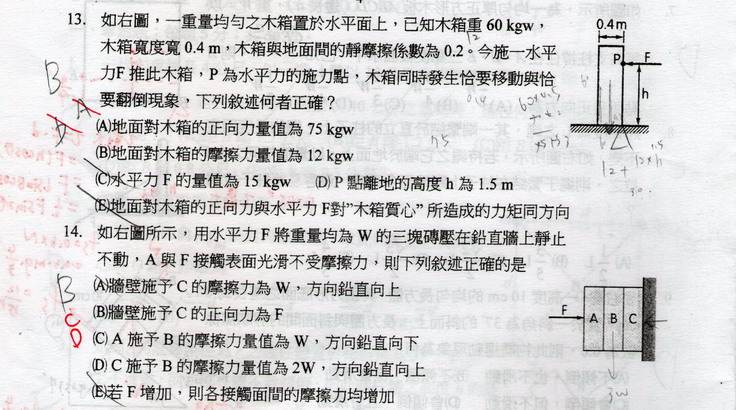 13. 如右圖，一重量均勻之木箱置於水平面上，已知木箱重 60 kgw，
木箱寬度寬 0.4 m，木箱與地面間的靜摩擦係數為 0.2。今施一水平
力F 推此木箱，P 為水平力的施力點，木箱同時發生恰要移動與恰
要翻倒現象，下列敘述何者正確？
(A)地面對木箱的正向力量值為 75 kgw
(B)地面對木箱的摩擦力量值為 12 kgw
(C)水平力 F 的量值為 15 kgw (D) P 點離地的高度 h 為 1.5 m
(E)地面對木箱的正向力與水平力 F對"木箱質心" 所造成的力矩同方向
0.4 m
P
F
h
B
A
12
14. 如右圖所示，用水平力 F 將重量均為 W 的三塊磚壓在鉛直牆上靜止
不動，A 與 F 接觸表面光滑不受摩擦力，則下列敘述正確的是
(A)牆壁施予 C 的摩擦力量為 W，方向鉛直向上
(B)牆壁施予 C 的正向力為 F
(C) A 施予 B 的摩擦力量值為 W，方向鉛直向下
(D) C 施予 B 的摩擦力量值為 2W，方向鉛直向上
(E)若 F 增加，則各接觸面間的摩擦力均增加
B
C
D
F
A B C
3W